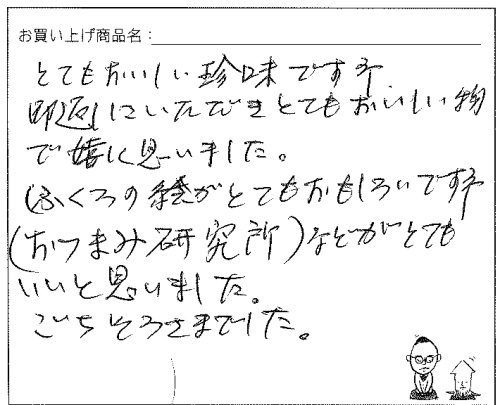 お買い上げ商品名：
とてもおいしい珍味ですネ
即返しにいただきとてもおいしい物
で嬉しく思いました。
ふくろの絵がとてもおもしろいですネ
(おつまみ研究所)などがとても
いいと思いました。
ごちそうさまでした。